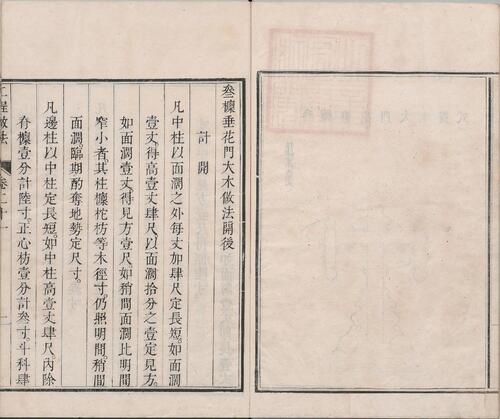 叁檁垂花門大木做法開後
計開
凡中柱以面濶之外每丈加肆尺定長短。如面濶
壹丈。得高壹丈肆尺。以面濶拾分之壹定見方。
如面濶壹丈。得見方壹尺。如稍間面濶比明間
窄小者。其柱檁枕枋等木徑寸。仍照明間。稍間
面濶臨期酌奪地勢定尺寸。
凡邊柱以中柱定長短。如中柱高壹丈肆尺。內除
脊檁壹分計陸寸。正心枋壹分計叁寸。斗科肆
工程做法
卷二十一
一